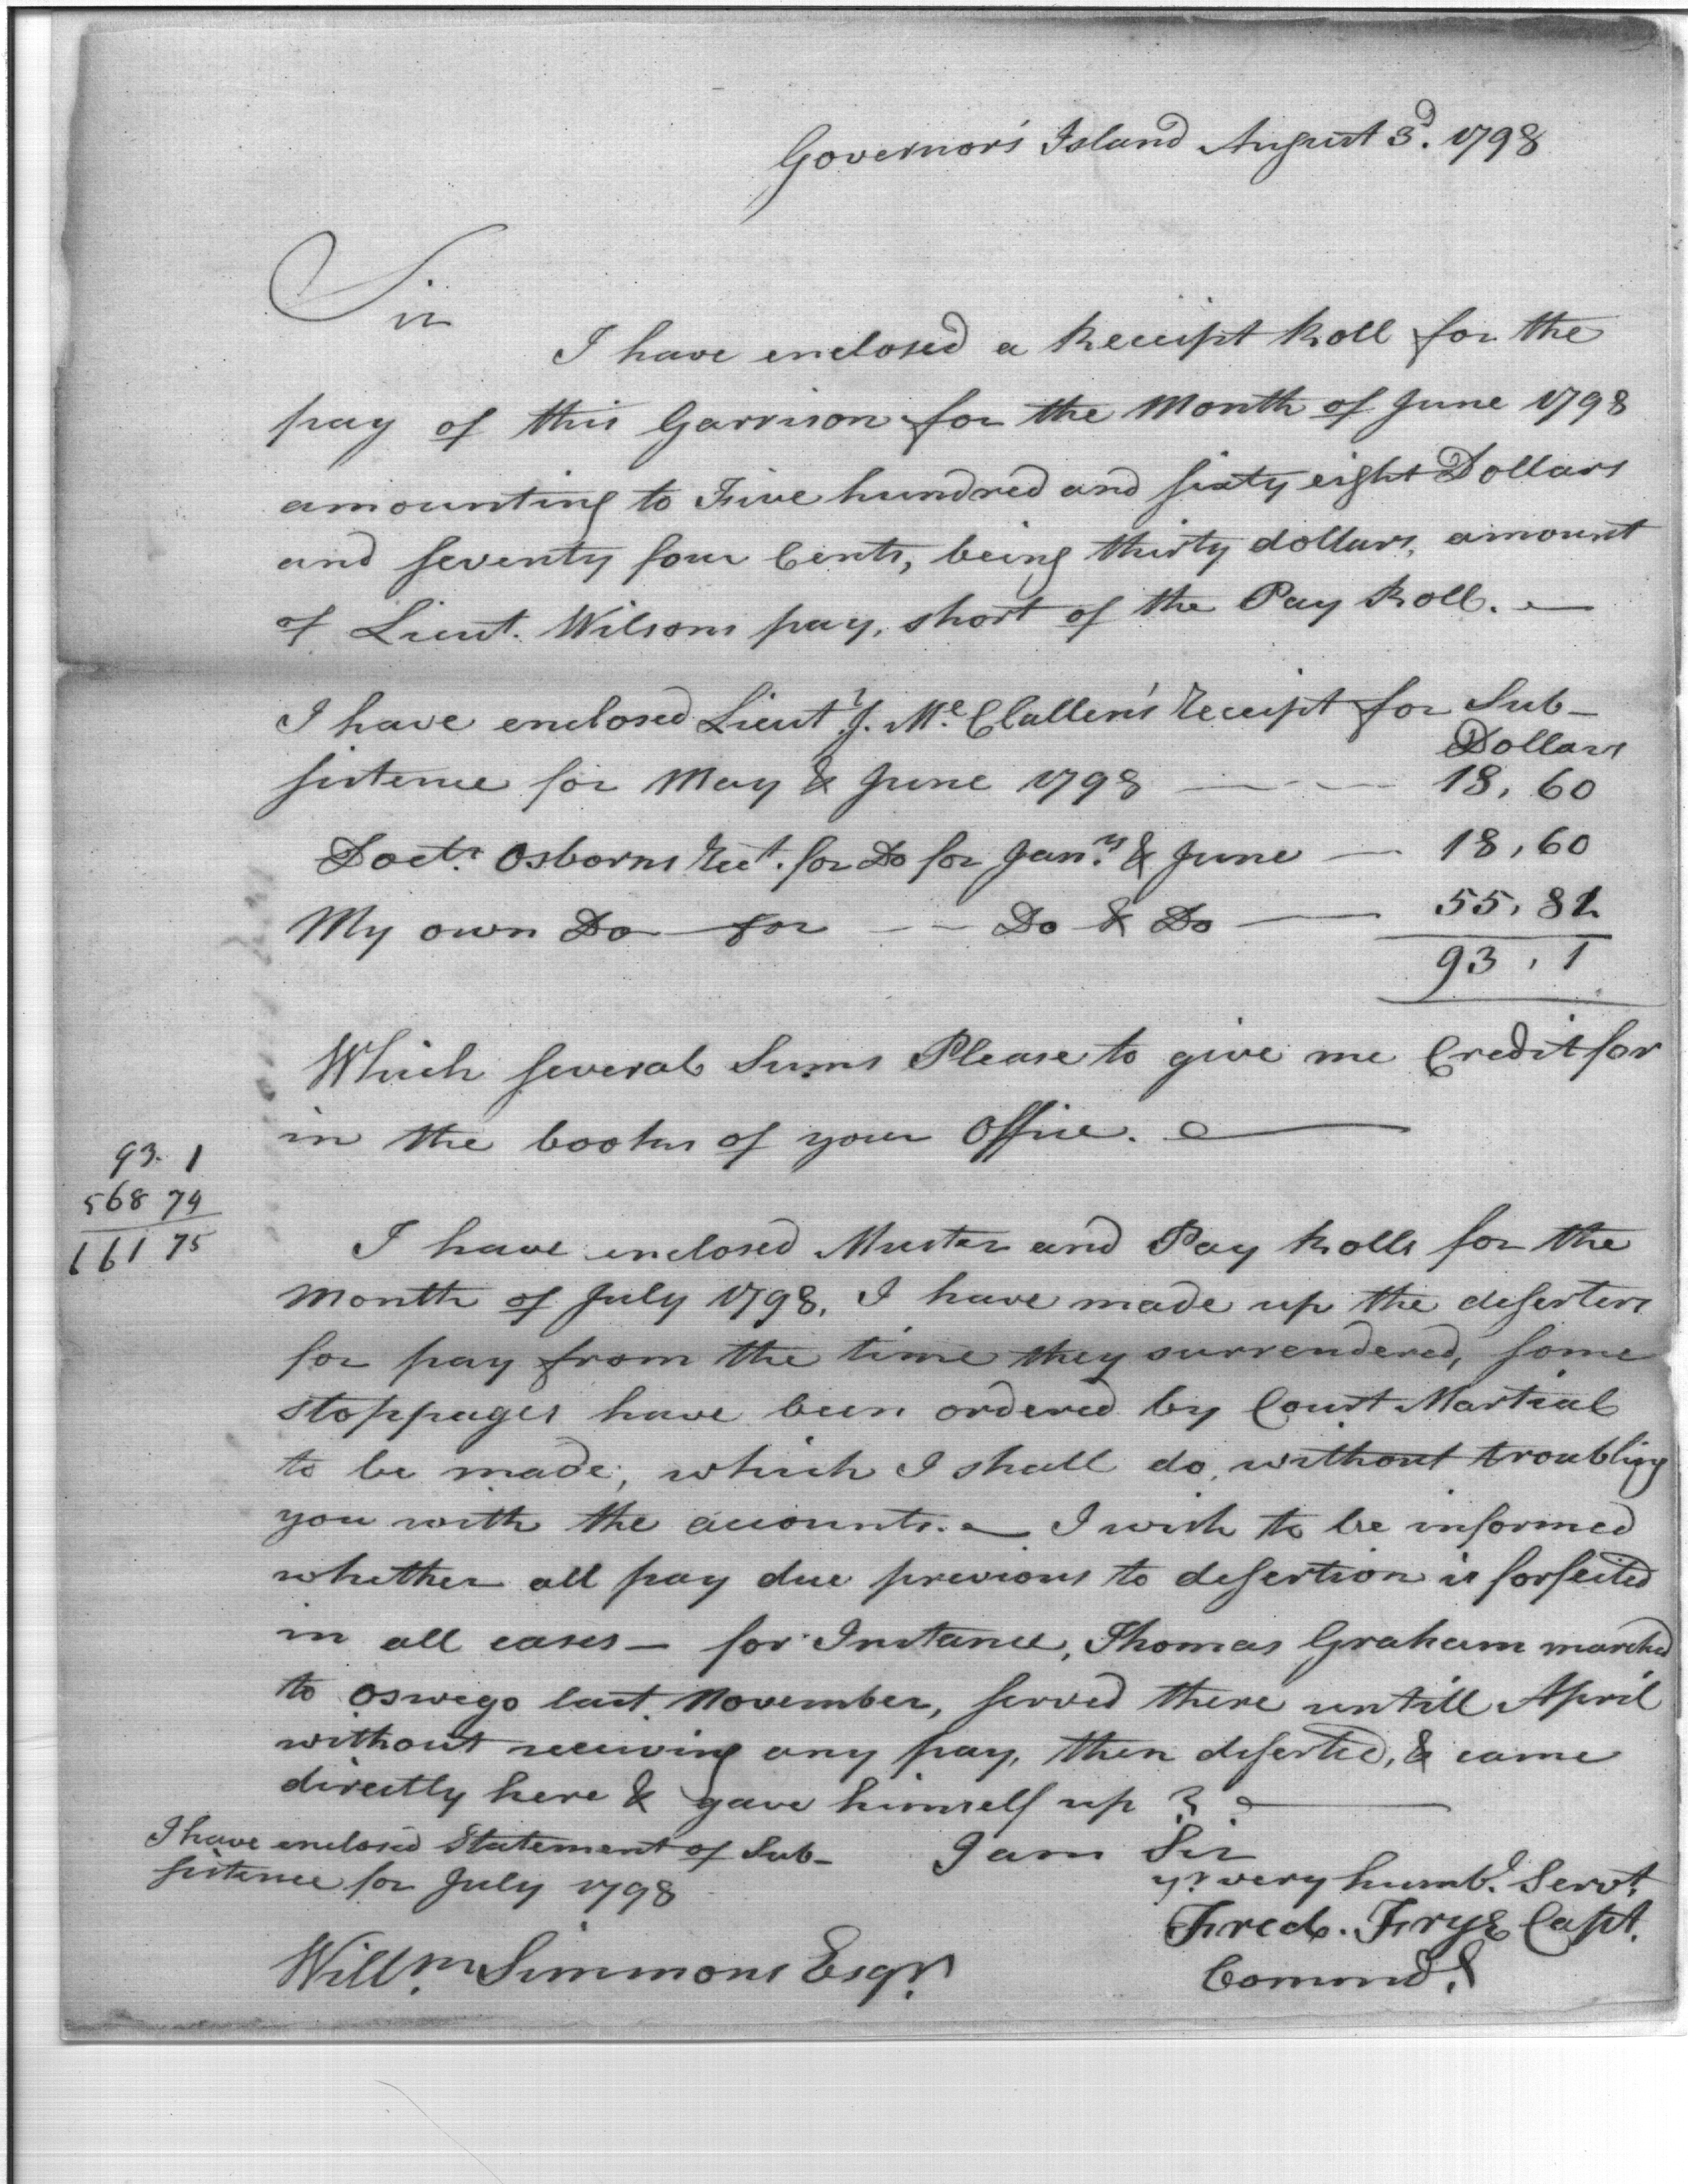 Governor's Island August 3d. 1798
Sir
I have enclosed a Receipt Roll for the
pay of this Garrison for the Month of June 1798
amounting to Five hundred and sixty eight Dollars
and seventy four Cents, being thirty dollars, amount
of Lieut. Wilsons pay, short of the Pay Roll.
I have enclosed Lieut. J. Mc. Clallen's receipt for Sub-
Dollars
sistence for May & June 1798 — - — 18, 60
Doctr. Osborns Rect. for Do for Jany. & June — 18, 60
My own Do for - - Do & Do — 55, 81
93, 1
Which several Sums Please to give me Credit for
in the books of your Office.
93. 1
568 74
661 75
I have enclosed Muster and Pay Rolls for the
Month of July 1798, I have made up the deserters
for pay from the time they surrendered, some
stoppages have been ordered by Court Martial
to be made, which I shall do, without troubling
you with the accounts. — I wish to be informed
whether all pay due previous to desertion is forfeited
in all cases — for Instance, Thomas Graham marched
to Oswego last November, served there untill April
without receiving any pay, then deserted, & came
directly here & gave himself up ?
I have enclosed Statement of Sub-
sistence for July 1798
I am Sir
yr. very humbl. Servt.
Fredk. Frye Capt.
Commdt.
Willm. Simmons Esqr.